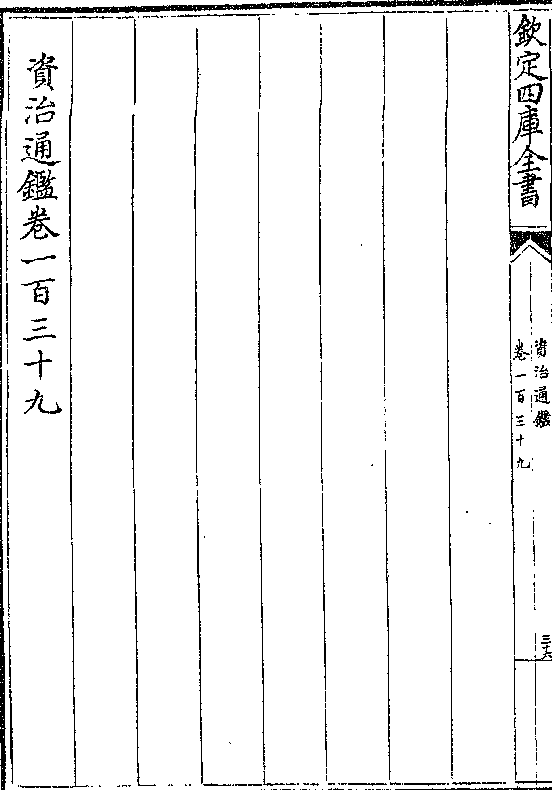 欽定四庫全書
資治通鑑
卷一百三十九
三六
資治通鑑卷一百三十九